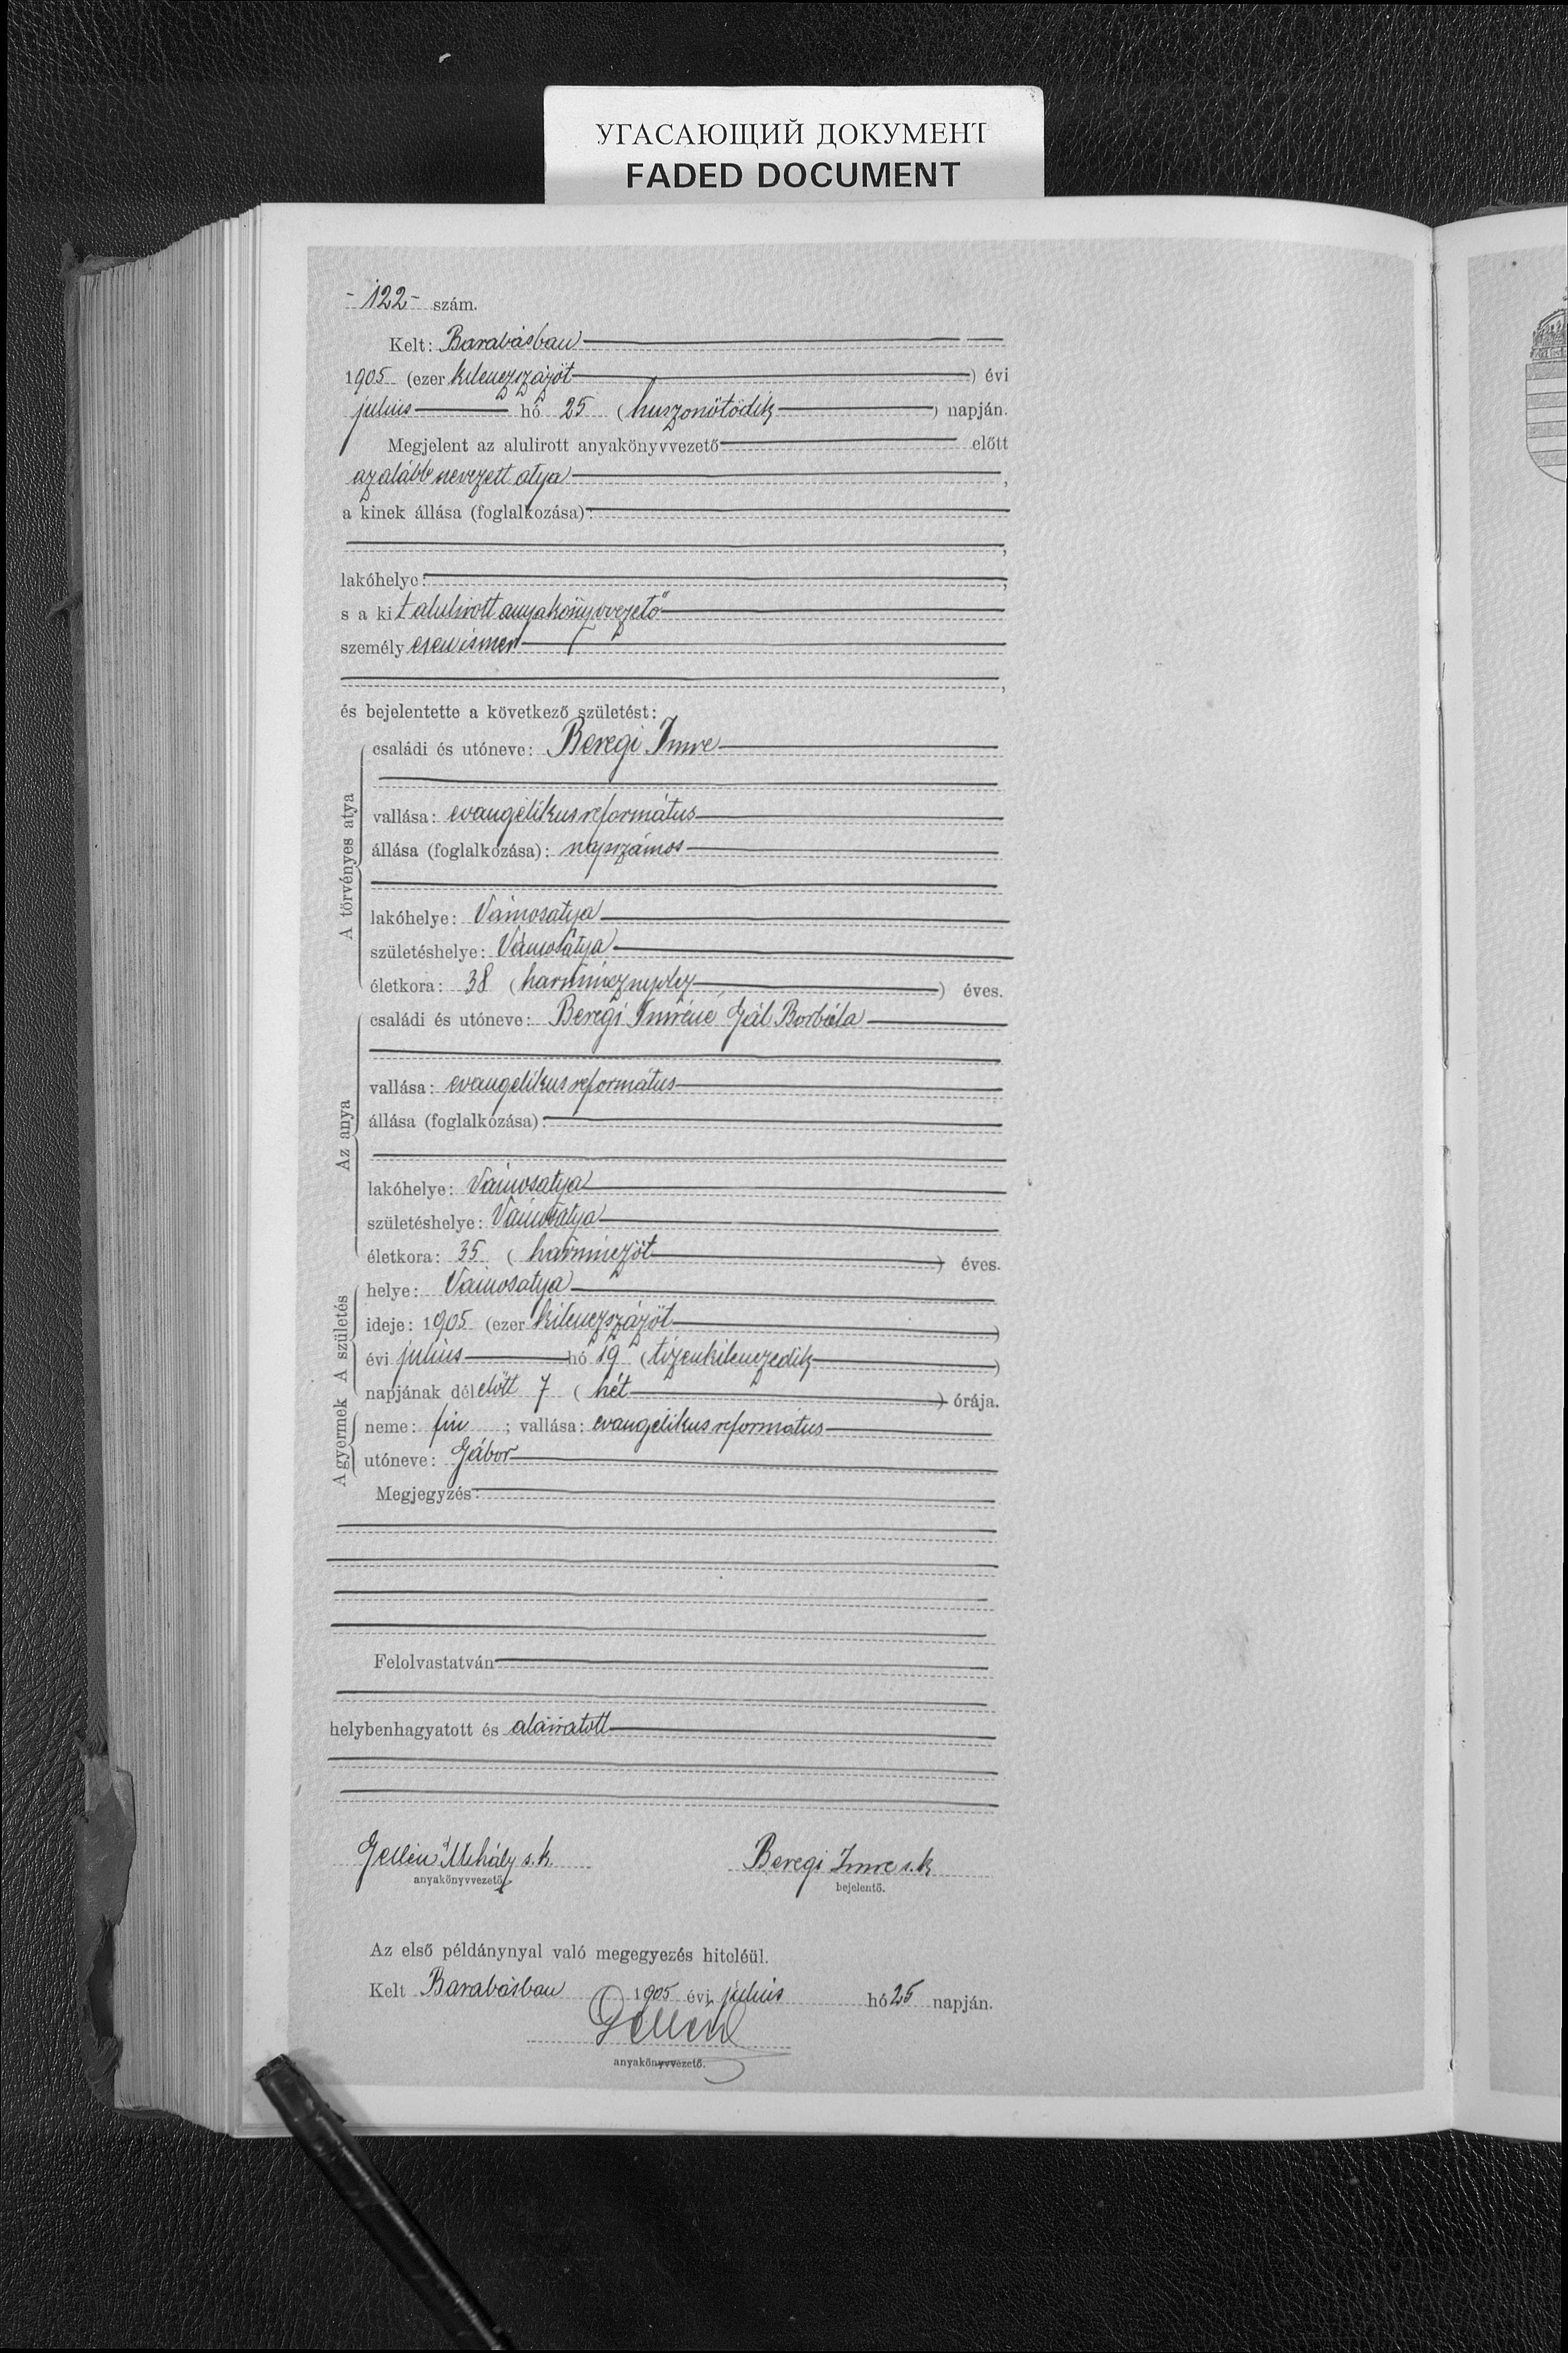 УГАСАЮЩИЙ ДОКУМЕНТ
FADED DOCUMENT
-122- szám.
Kelt: Barabásban
1905 (ezer kilenczszázöt) évi
julius hó 25 (huszonötödik) napján.
Megjelent az alulirott anyakönyvvezető előtt
az alább nevezett atya,
a kinek állása (foglalkozása):
,
lakóhelye: ,
s a kit alulirott anyakönyvvezető
személyesen ismer
,
és bejelentette a következő születést:
A törvényes atya
családi és utóneve: Beregi Imre
vallása: evangélikus református
állása (foglalkozása): napszámos
lakóhelye: Vámosatya
születéshelye: Vámosatya
életkora: 38 (harmincznyolcz) éves.
Az anya
családi és utóneve: Beregi Imréné Gál Borbála
vallása: evangelikus református
állása (foglalkozása):
lakóhelye: Vámosatya
születéshelye: Vámosatya
életkora: 35 (harminczöt) éves.
A születés
helye: Vámosatya
ideje: 1905 (ezer kilenczszázöt)
évi julius hó 19 (tizenkilenczedik)
napjának délelőtt 7 (hét) órája.
A gyermek
neme: fiu ; vallása: evangélikus református
utóneve: Gábor
Megjegyzés:
Felolvastatván
helybenhagyatott és aláiratott
Gellén Mihály s.k. Beregi Imre s.k.
anyakönyvvezető. bejelentő.
Az első példánynyal való megegyezés hiteléül.
Kelt Barabásban 1905 évi julius hó 25 napján.
Gellén
anyakönyvvezető.